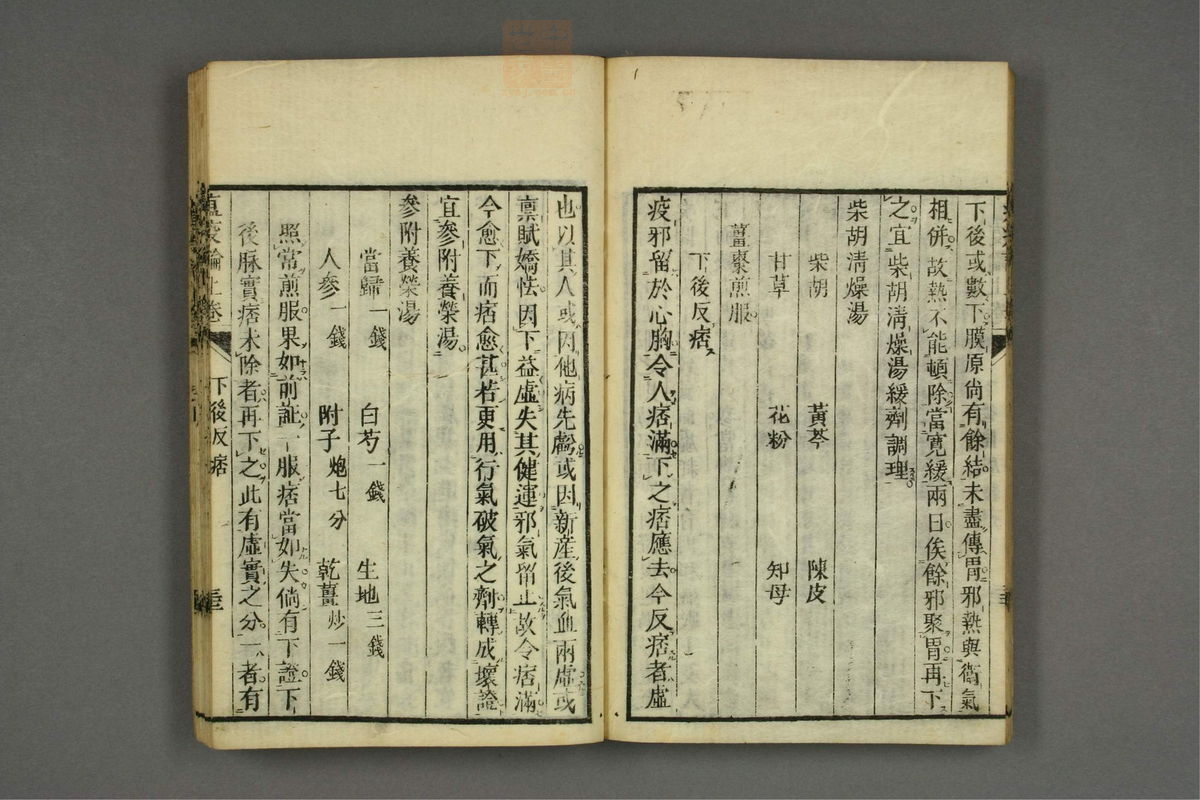 下後或數下膜原尙有餘結未盡傳胃邪熱與衞氣
相併故熱不能頓除當寬緩兩日俟餘邪聚胃再下
之宜柴胡淸燥湯緩劑調理
柴胡淸燥湯
柴胡 黃芩 陳皮
甘草 花粉 知母
薑棗煎服
下後反痞
疫邪留於心胸令人痞滿下之痞應去今反痞者虛
也以其人或因他病先虧或因新產後氣血兩虛或
禀賦嬌怯因下益虛失其健運邪氣留止故令痞滿
今愈下而痞愈甚若更用行氣破氣之劑轉成壞證
宜參附養榮湯
參附養榮湯
當歸一錢 白芍一錢 生地三錢
人參一錢 附子炮七分 乾薑炒一錢
照常煎服果如前証一服痞當如失倘有下證下
後脉實痞未除者再下之此有虛實之分一者有
瘟疫論上卷 下後反痞